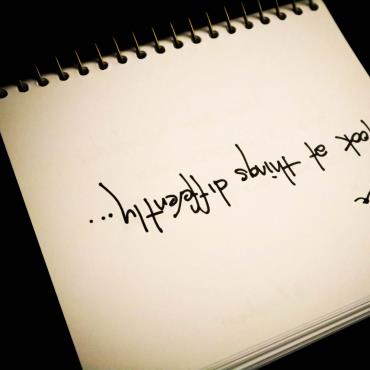 look at things differently...